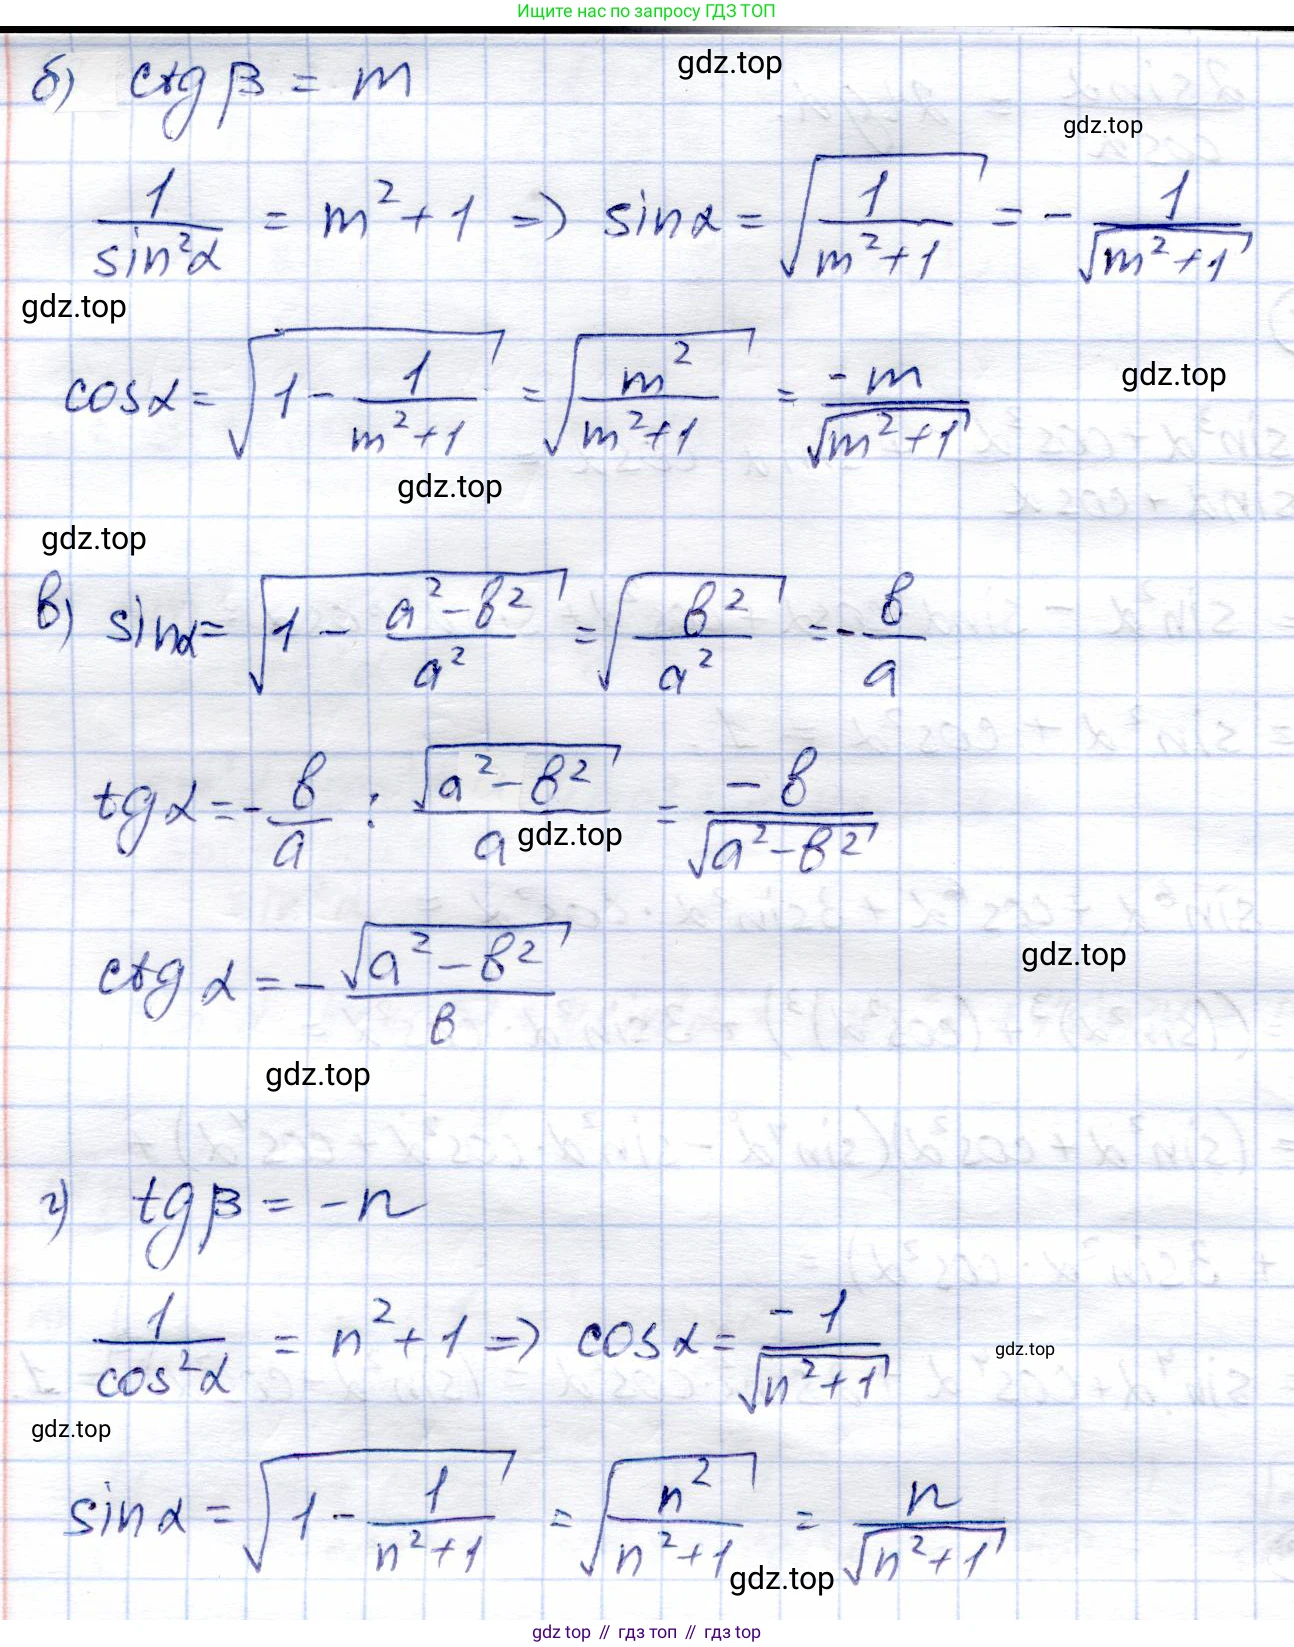 Ищите нас по запросу ГДЗ ТОП
б) ctg β = m
gdz.top
gdz.top
1/sin²α = m² + 1 => sin α = √(1/(m²+1)) = - 1/√(m²+1)
gdz.top
cos α = √(1 - 1/(m²+1)) = √(m²/(m²+1)) = -m/√(m²+1)
gdz.top
gdz.top
gdz.top
в) sin α = √(1 - (a²-в²)/a²) = √(в²/a²) = - в/a
tg α = - в/a : √(a²-в²)/a = -в/√(a²-в²)
gdz.top
ctg α = - √(a²-в²)/в
gdz.top
gdz.top
г) tg β = -n
1/cos²α = n² + 1 => cos α = -1/√(n²+1)
gdz.top
gdz.top
sin α = √(1 - 1/(n²+1)) = √(n²/(n²+1)) = n/√(n²+1)
gdz.top
gdz top // гдз топ // гдз top